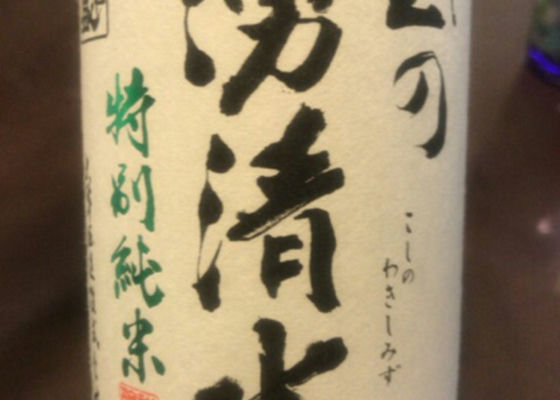 の
こしの
わきしみず
湧清水
特別純米